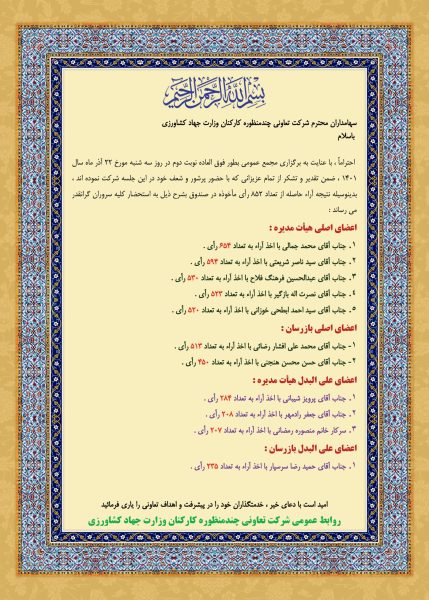 بسم الله الرحمن الرحیم
سهامداران محترم شرکت تعاونی چندمنظوره کارکنان وزارت جهاد کشاورزی
باسلام
احتراماً ، با عنایت به برگزاری مجمع عمومی بطور فوق العاده نوبت دوم در روز سه شنبه مورخ ۲۲ آذر ماه سال
۱۴۰۱ ، ضمن تقدیر و تشکر از تمام عزیزانی که با حضور پرشور و شعف خود در این جلسه شرکت نموده اند ،
بدینوسیله نتیجه آراء حاصله از تعداد ۸۵۲ رأی مأخوذه در صندوق بشرح ذیل به استحضار کلیه سروران گرانقدر
می رساند :
اعضای اصلی هیأت مدیره :
۱. جناب آقای محمد جمالی با اخذ آراء به تعداد ۶۵۴ رأی .
۲. جناب آقای سید ناصر شریعتی با اخذ آراء به تعداد ۵۹۴ رأی .
۳. جناب آقای عبدالحسین فرهنگ فلاح با اخذ آراء به تعداد ۵۳۰ رأی .
۴. جناب آقای نصرت اله بازگیر با اخذ آراء به تعداد ۵۲۳ رأی .
۵. جناب آقای سید احمد ابطحی خوزانی با اخذ آراء به تعداد ۵۲۰ رأی .
اعضای اصلی بازرسان :
۱- جناب آقای محمد علی افشار رضائی با اخذ آراء به تعداد ۵۱۳ رأی .
۲- جناب آقای حسن محسن هنجنی با اخذ آراء به تعداد ۴۵۰ رأی .
اعضای علی البدل هیأت مدیره :
۱. جناب آقای پرویز شیبانی با اخذ آراء به تعداد ۲۸۴ رأی .
۲. جناب آقای جعفر رادمهر با اخذ آراء به تعداد ۲۰۸ رأی .
۳. سرکار خانم منصوره رمضانی با اخذ آراء به تعداد ۲۰۷ رأی .
اعضای علی البدل بازرسان :
۱. جناب آقای حمید رضا سرسپار با اخذ آراء به تعداد ۲۳۵ رأی .
امید است با دعای خیر ، خدمتگذاران خود را در پیشرفت و اهداف تعاونی را یاری فرمائید
روابط عمومی شرکت تعاونی چندمنظوره کارکنان وزارت جهاد کشاورزی